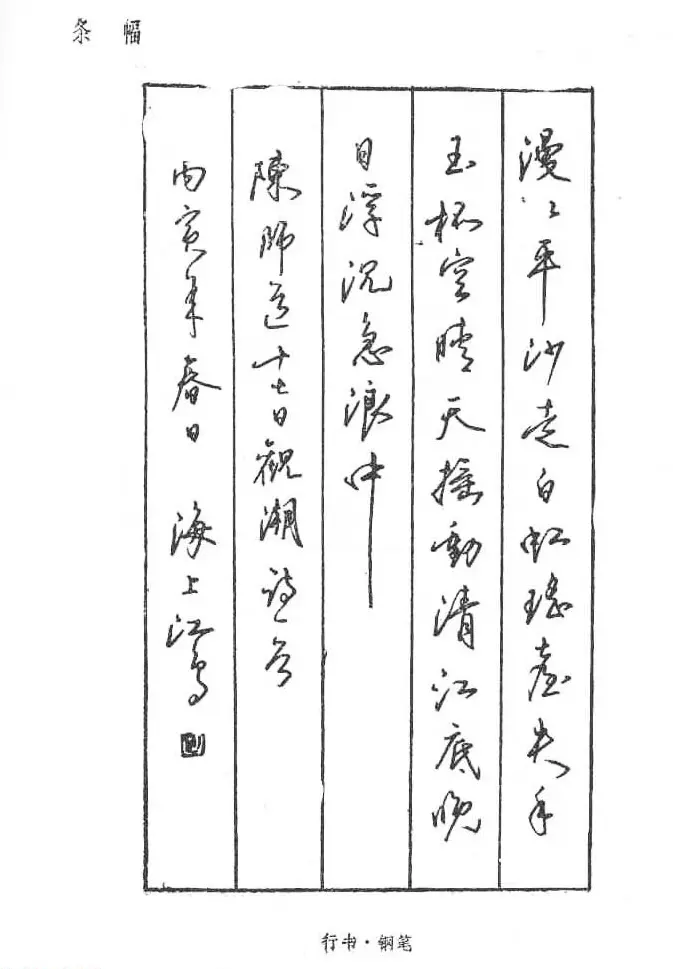 条 幅
漫〻平沙走白虹瑶臺失手
玉杯空晴天摇動清江底晚
日浮沉急浪中
陳師道十七日觀潮詩一首
丙寅年春日 海上江鸟
行书·钢笔